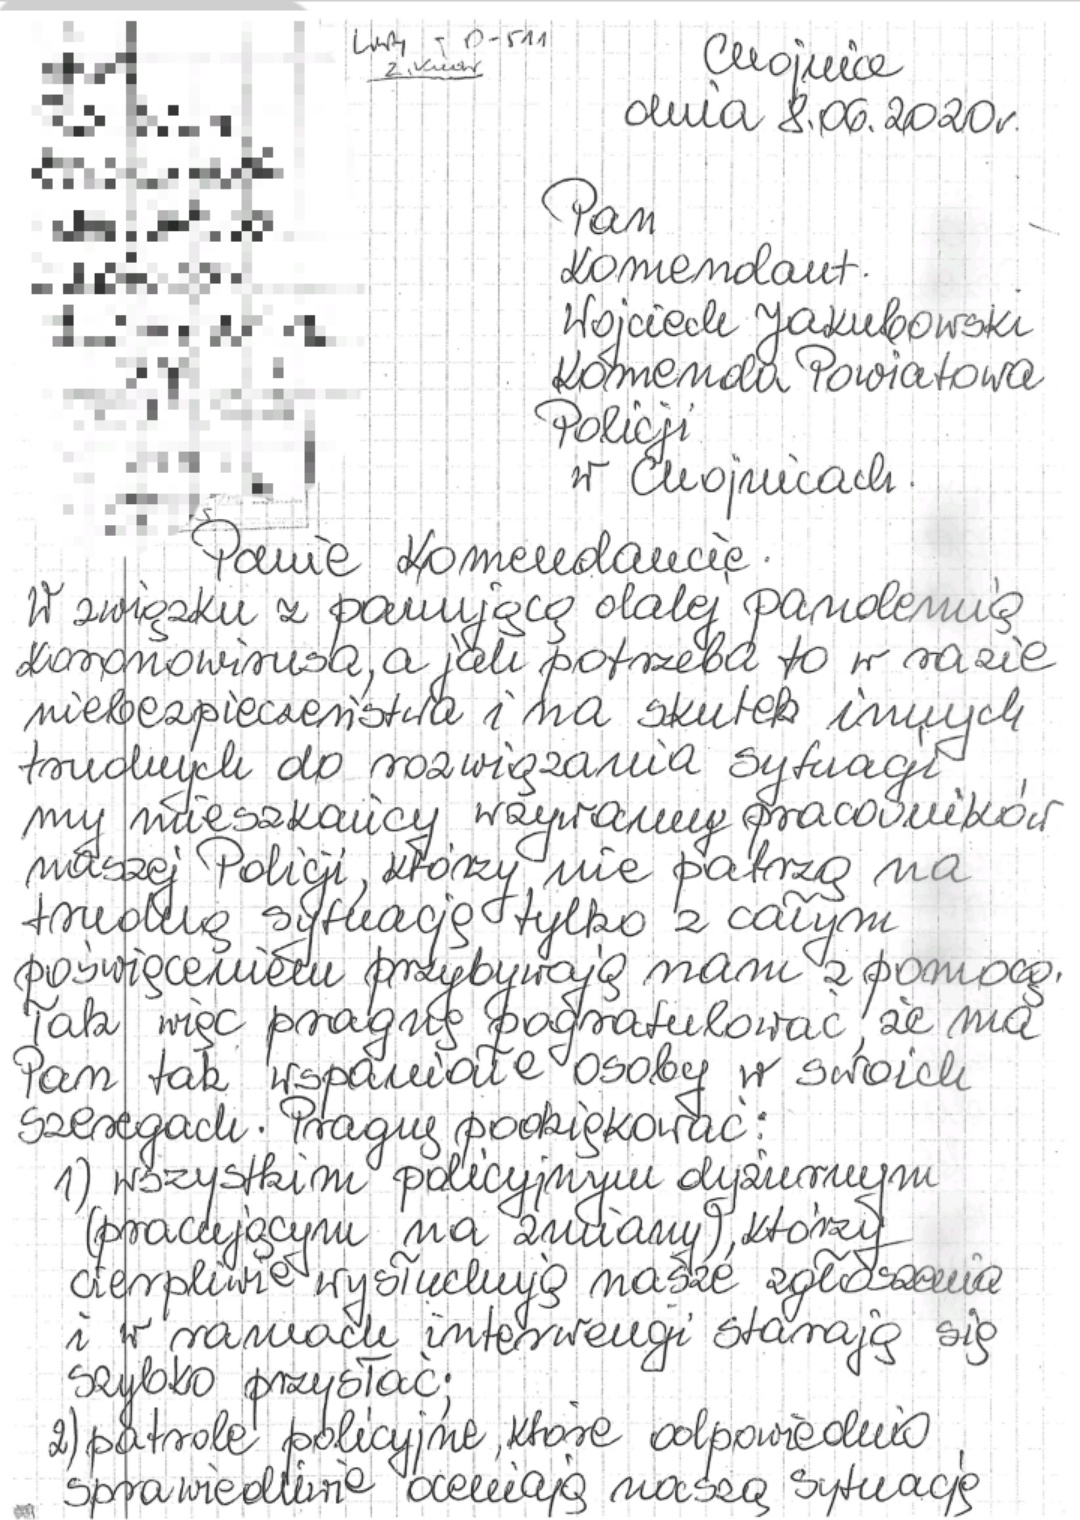 D-511
Chojnice
dnia 8.06.2020r.
Pan
Komendant.
Wojciech Jakubowski
Komenda Powiatowa
Policji
w Chojnicach.
Panie Komendancie.
W związku z panującą dalej pandemią
koronowirusa, a jak potrzeba to w razie
niebezpieczeństwa i na skutek innych
trudnych do rozwiązania sytuacji
my mieszkańcy wzywamy pracowników
naszej Policji, którzy nie patrzą na
trudną sytuację tylko z całym
poświęceniem przybywają nam z pomocą.
Tak więc pragnę pogratulować, że ma
Pan tak wspaniałe osoby w swoich
szeregach. Pragnę podziękować:
1) wszystkim policyjnym dyżurnym
(pracującym na zmiany), którzy
cierpliwie wysłuchują nasze zgłoszenia
i w ramach interwencji starają się
szybko przysłać;
2) patrole policyjne, które odpowiednio,
sprawiedliwie oceniają naszą sytuację